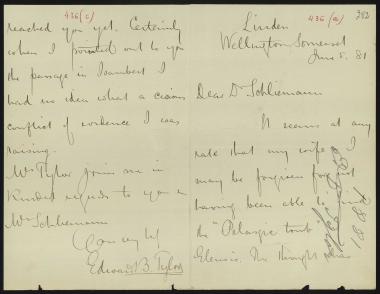 436(a)
382
Linden
Wellington, Somerset
June 5. 81
Dear Dr Schliemann
It seems at any
rate that my wife & I
may be forgiven for not
having been able to find
the "Pelasgic tomb
Eleusis. The thought was
1881
436(c)
reached you yet. Certainly
when I pointed out to you
the passage in Isambert I
had no idea what a curious
conflict of evidence I was
raising.
Mrs Tylor joins me in
kindest regards to you &
Mrs Schliemann
Yours very truly
Edward B. Tylor